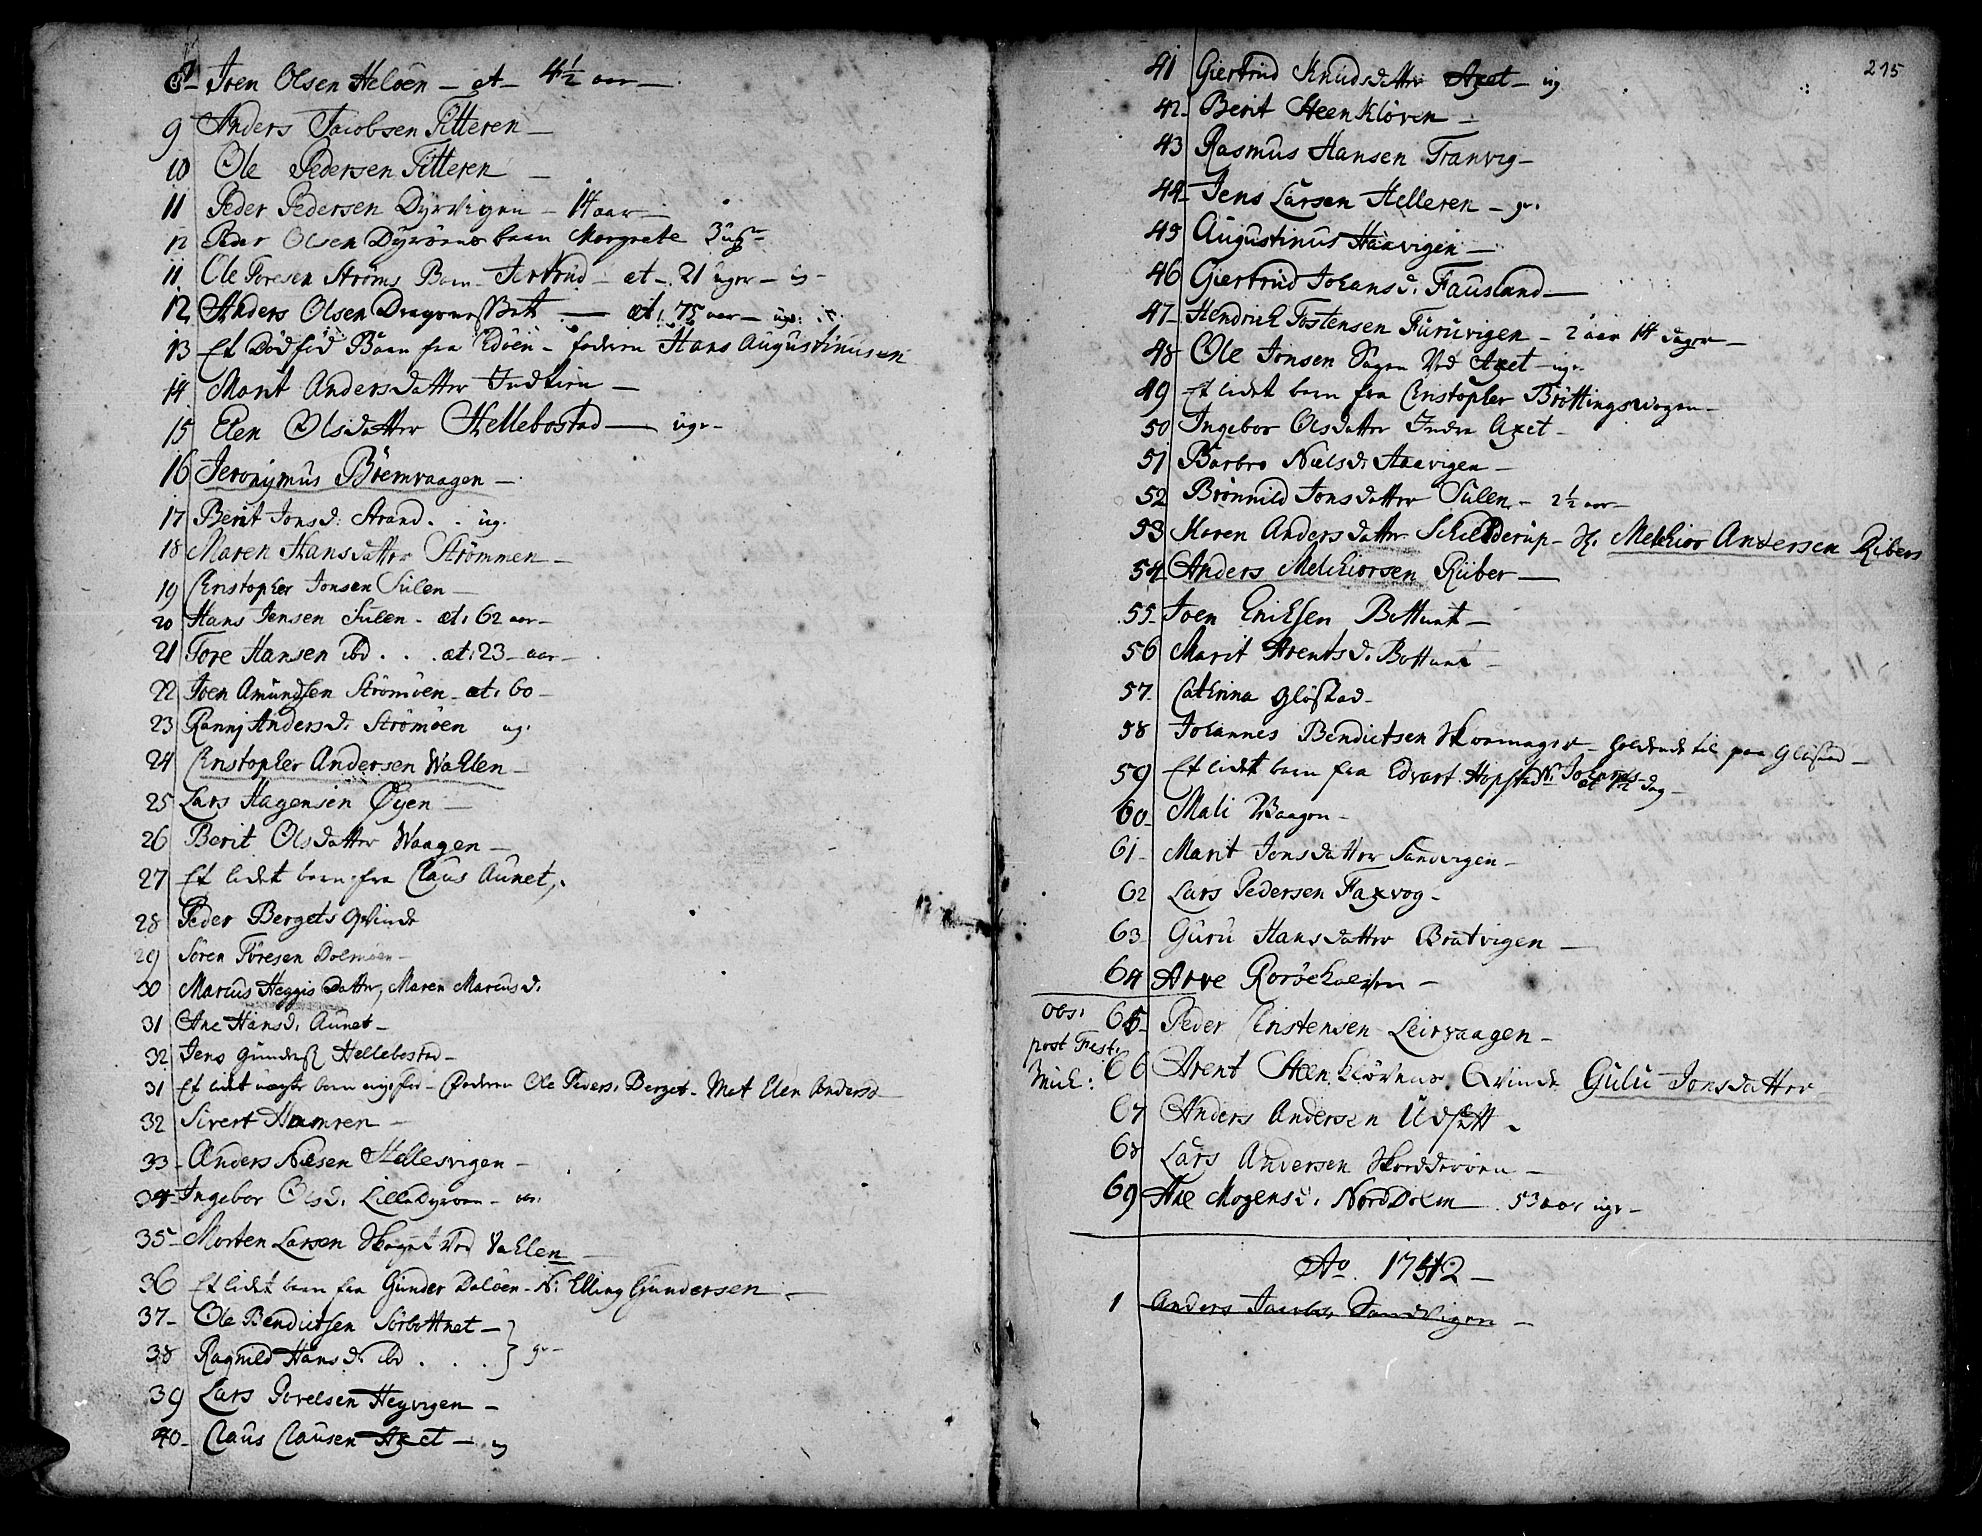 8 Joen Olsen Heloen - æt - 4½ aar -
9 Anders Jacobsen Titteren -
10 Ole Pedersen Titteren -
11 Peder Pedersen Dyrvigen - 14 aar -
12 Peder Olsen Dyröens baen Margrete 3
11 Ole Toresen Ströms Barn Jertrud - æt - 21 uger - ug -
12 Anders Olsen Dragons - æt: 75 aar - ugr:
13 Et Dödföd Barn fra Edöen - faderen Hans Augustinusen
14 Marit Andersdatter Indtien -
15 Elen Olsdatter Hellebostad - ugr -
16 Jeronymus Bremvaagen -
17 Berit Jonsd: Strand . . ug.
18 Maren Hansdatter Strömmen -
19 Christopher Jonsen Sulen -
20 Hans Jensen Sulen - æt: 62 aar -
21 Tore Hansen ibd . . . æt: 23 - aar -
22 Joen Amundsen Strömöen - æt: 60 -
23 Ranni Andersd: Strömöen ug.
24 Christopher Andersen Wahlen -
25 Lars Hagensen Øyen -
26 Berit Olsdatter Waagen -
27 Et lidet barn fra Claus Aunet,
28 Peder Bergets Qvinde
29 Sören Töresen Dolmöen -
30 Marcus Heggis Datter, Maren Marcusd.
31 Ane Hansd. Aunet -
32 Jens Hellebostad -
31 Et lidet barn - faderen Ole Peders: Berget - Mod Elen Andersd -
32 Sivert Hamren -
33 - Anders Nilsen Hellesvigen -
34 - Ingebor Olsd. Lilledyroen -
35 - Morten Larsen Skaget ved Vahlen -
36 Et lidet barn fra Gunder Daloen - N: Elling Gundersen -
37 - Ole Bendictsen Sörbottnet -
38 Ragnild Hansd: ibd . . . } gr -
39 Lars Povelsen Heyvigen -
40 - Claus Clausen Axet - ug
215
41 Giertrud Knudsdatter Axet - ug
42 - Berit Steenklöven -
43 Rasmus Hansen Tranvig -
44 - Jens Larsen Helleren - gr.
45 Augustinus Haavigen -
46 Giertrud Johansd. Fausland -
47 - Hendrich Tostensen Furuvigen - 2 aar 14 dager -
48 Ole Jonsen Sagen ved Axet - ugr.
49 Et lidet barn fra Christopher Bröttingsvogen -
50 Ingebor Olsdatter Indre Axet -
51 Barbro Nielsd. Haavigen -
52 Brönnild Jonsdatter Sulen - 2½ aar -
53 Maren Andersdatter Schielderup - H. Melchior Andersen Ribers
54 - Anders Melchiorsen Rüber -
55 - Joen Erichsen Bottnet -
56 Marit Arentsd. Bottnet -
57 - Cathrina Glöstad -
58 Johannes Bendictsen Skoemager - holdende til paa Glöstad -
59 Et lidet barn fra Edvart Hopstad N. Johannes æt ½ dag -
60 - Mali Waagen -
61 - Marit Jonsdatter Sandvigen -
62 Lars Pedersen Faxvog -
63 - Guru Hansdatter Bratvigen -
64 Arve Roröeholmen -
obs:
post Fest:
Mich:
65 - Peder Christensen Leirvaagen -
66 Arent Steenklövens Qvinde Gulu Jonsdatter
67 Anders Andersen Udset -
68 Lars Andersen
69 Ane Mogensd: Nord Dolm 53 aar ugr -
Ao. 1742 -
1 Anders Jacobs: Sandvigen -